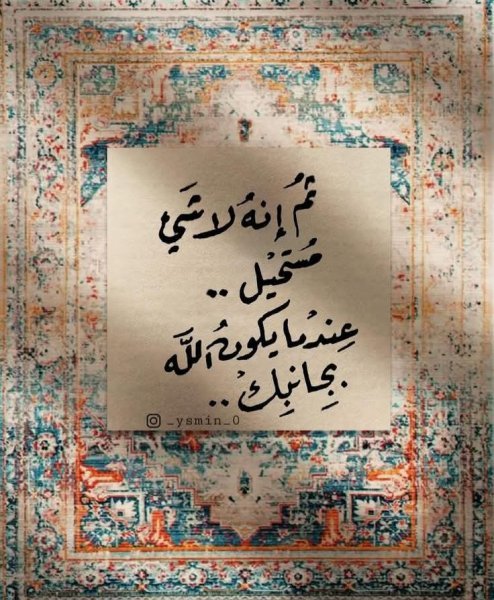 ثمُ إنهُ لا شَيَ
مُستحيْل ..
عِندْما يكونُ الله
بِجانبِكْ ..
_ysmin_0